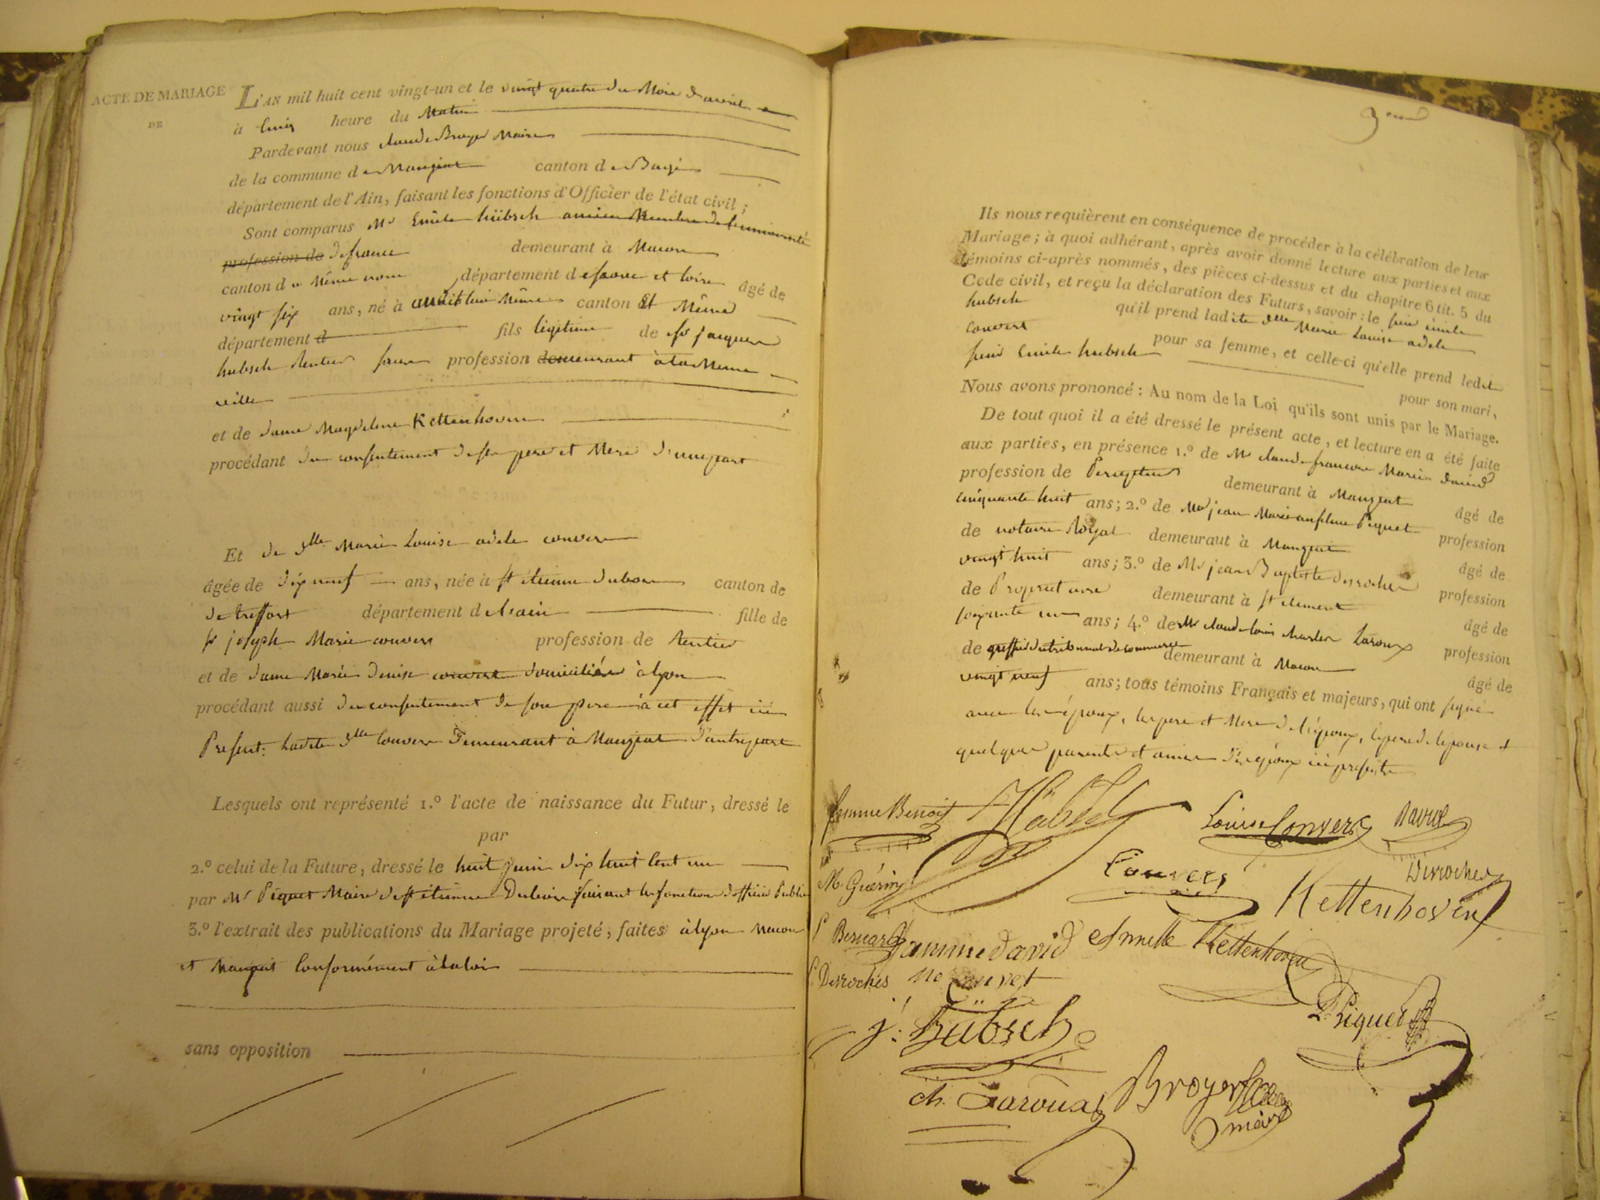 ACTE DE MARIAGE
DE
L'AN mil huit cent vingt-un et le vingt quatre du Mois d'avril
à heure du Matin
Pardevant nous claude Broyer Maire
de la commune de Mangeat canton de Bagé
département de l'Ain, faisant les fonctions d'Officier de l'état civil ;
Sont comparus Mr Emile hübsch ancien Membre de l'université
profession de de france demeurant à Macon
canton du Même nom département de saone et loire âgé de
vingt six ans, né à audit lieu Même canton Et Même
département d fils légitime de sr jacques
hubsch Rentier sans profession demeurant à la Meme
ville
et de dame Magdelene Kettenhoven
procédant du consentement de ses pere et Mere d'une part
Et de Dlle Marie Louise adele convers
âgée de dix neuf ans, née à st étienne dubois canton de
de treffort département de l'ain fille de
sr joseph Marie convers profession de Rentier
et de dame Marie denise convert domiciliés à lyon
procédant aussi du consentement de son pere à cet effet ici
Présent. Ladite Dlle Convers Demeurant à Mangeat d'autre part
Lesquels ont représenté 1.º l'acte de naissance du Futur, dressé le
par
2.º celui de la Future, dressé le huit juin dix huit cent un
par Mr Piquet Maire de st étienne Dubois faisant les fonctions d'officier Public
3.º l'extrait des publications du Mariage projeté, faites à lyon Macon
et Mangeat Conformément à la loi
sans opposition
Ils nous requièrent en conséquence de procéder à la célébration de leur
Mariage ; à quoi adhérant, après avoir donné lecture aux parties et aux
témoins ci-après nommés, des pièces ci-dessus et du chapitre 6 tit. 5 du
Code civil, et reçu la déclaration des Futurs, savoir : le sieur émile
hubsch qu'il prend ladite Dlle Marie Louise adele
convers pour sa femme, et celle-ci qu'elle prend ledit
sieur Emile hubsch pour son mari,
Nous avons prononcé : Au nom de la Loi qu'ils sont unis par le Mariage.
De tout quoi il a été dressé le présent acte, et lecture en a été faite
aux parties, en présence 1.º de Mr claude francois Marie david
profession de Percepteur demeurant à Mangeat âgé de
cinquante huit ans ; 2.º de Mr jean Marie anselme Piquet profession
de notaire Royal demeurant à Mangeat âgé de
vingt huit ans ; 3.º de Mr jean Baptiste desroches profession
de Propriétaire demeurant à st clement âgé de
soixante un ans ; 4.º de Mr claude louis charles Laroux profession
de greffier du tribunal de commerce demeurant à Macon âgé de
vingt neuf ans ; tous témoins Français et majeurs, qui ont signé
avec les époux, les pere et Mere de l'époux, le pere de l'epouse et
quelques parents et amis des époux ici présents
femme Benoit Hübsch Louise Convers David
M. Guérin Convers Desroches
Kettenhoven
Bernard femme david Annette Kettenhoven
Desroches
Piquet
j. Hübsch
ch. Broyer
maire